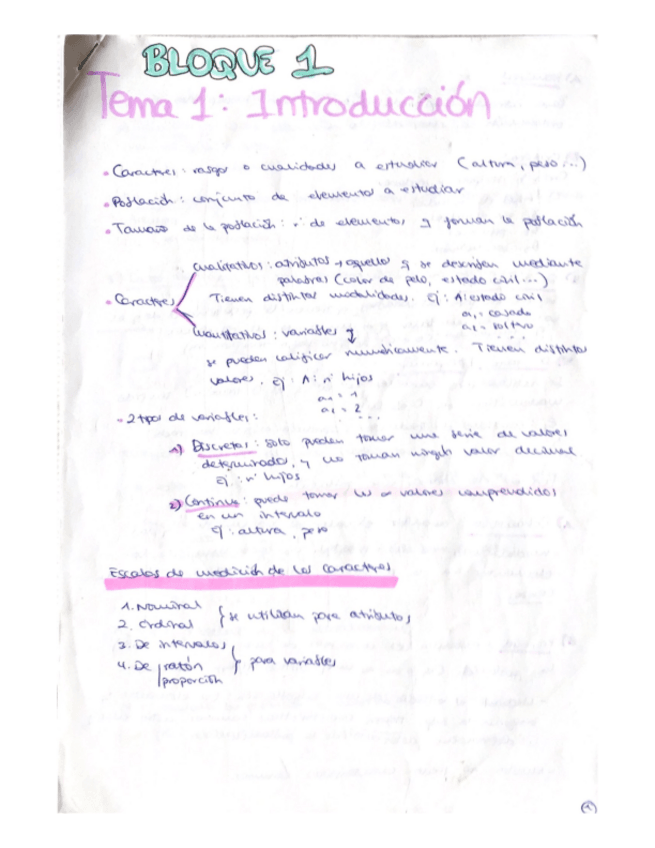 BLOQUE 1
Tema 1: Introducción
• Caracteres: rasgos o cualidades a estudiar (altura, peso...)
• Población: conjunto de elementos a estudiar
• Tamaño de la población: nº de elementos q forman la población
cualitativos: atributos → aquellos q se describen mediante
palabras (color de pelo, estado civil...)
• Caracteres
Tienen distintas modalidades. Ej: A: estado civil
a₁ = casado
a₂ = soltero
...
cuantitativos: variables
se pueden calificar numéricamente. Tienen distintos
valores. Ej: A: nº hijos
a₁ = 1
a₂ = 2
...
• 2 tipos de variables:
1) Discretas: solo pueden tomar una serie de valores
determinados, y no toman ningún valor decimal
Ej: nº hijos
2) Continua: puede tomar los ∞ valores comprendidos
en un intervalo
Ej: altura, peso
Escalas de medición de los caracteres
1. Nominal
2. Ordinal } se utilizan para atributos
3. De intervalos
4. De razón } para variables
proporción
1